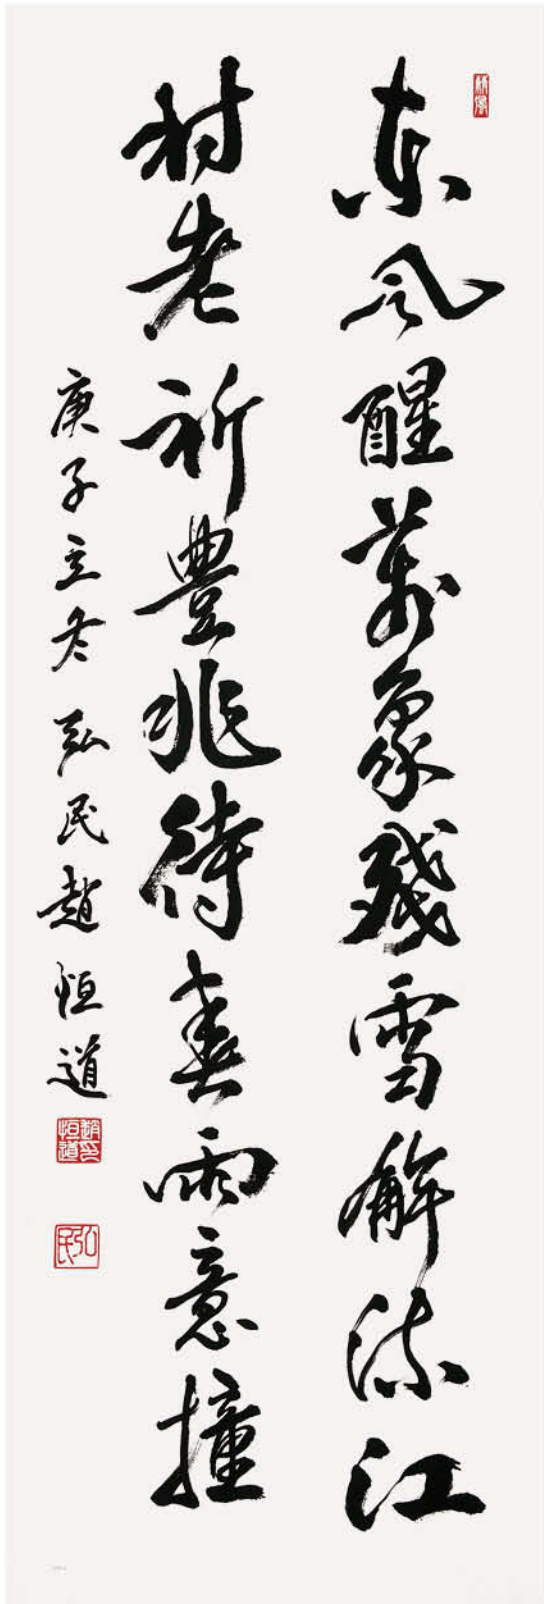 東風醒萬象殘雪解流江
村老祈豐兆待春雨意撞
庚子立冬弘民趙恒道
趙恒道印
弘民